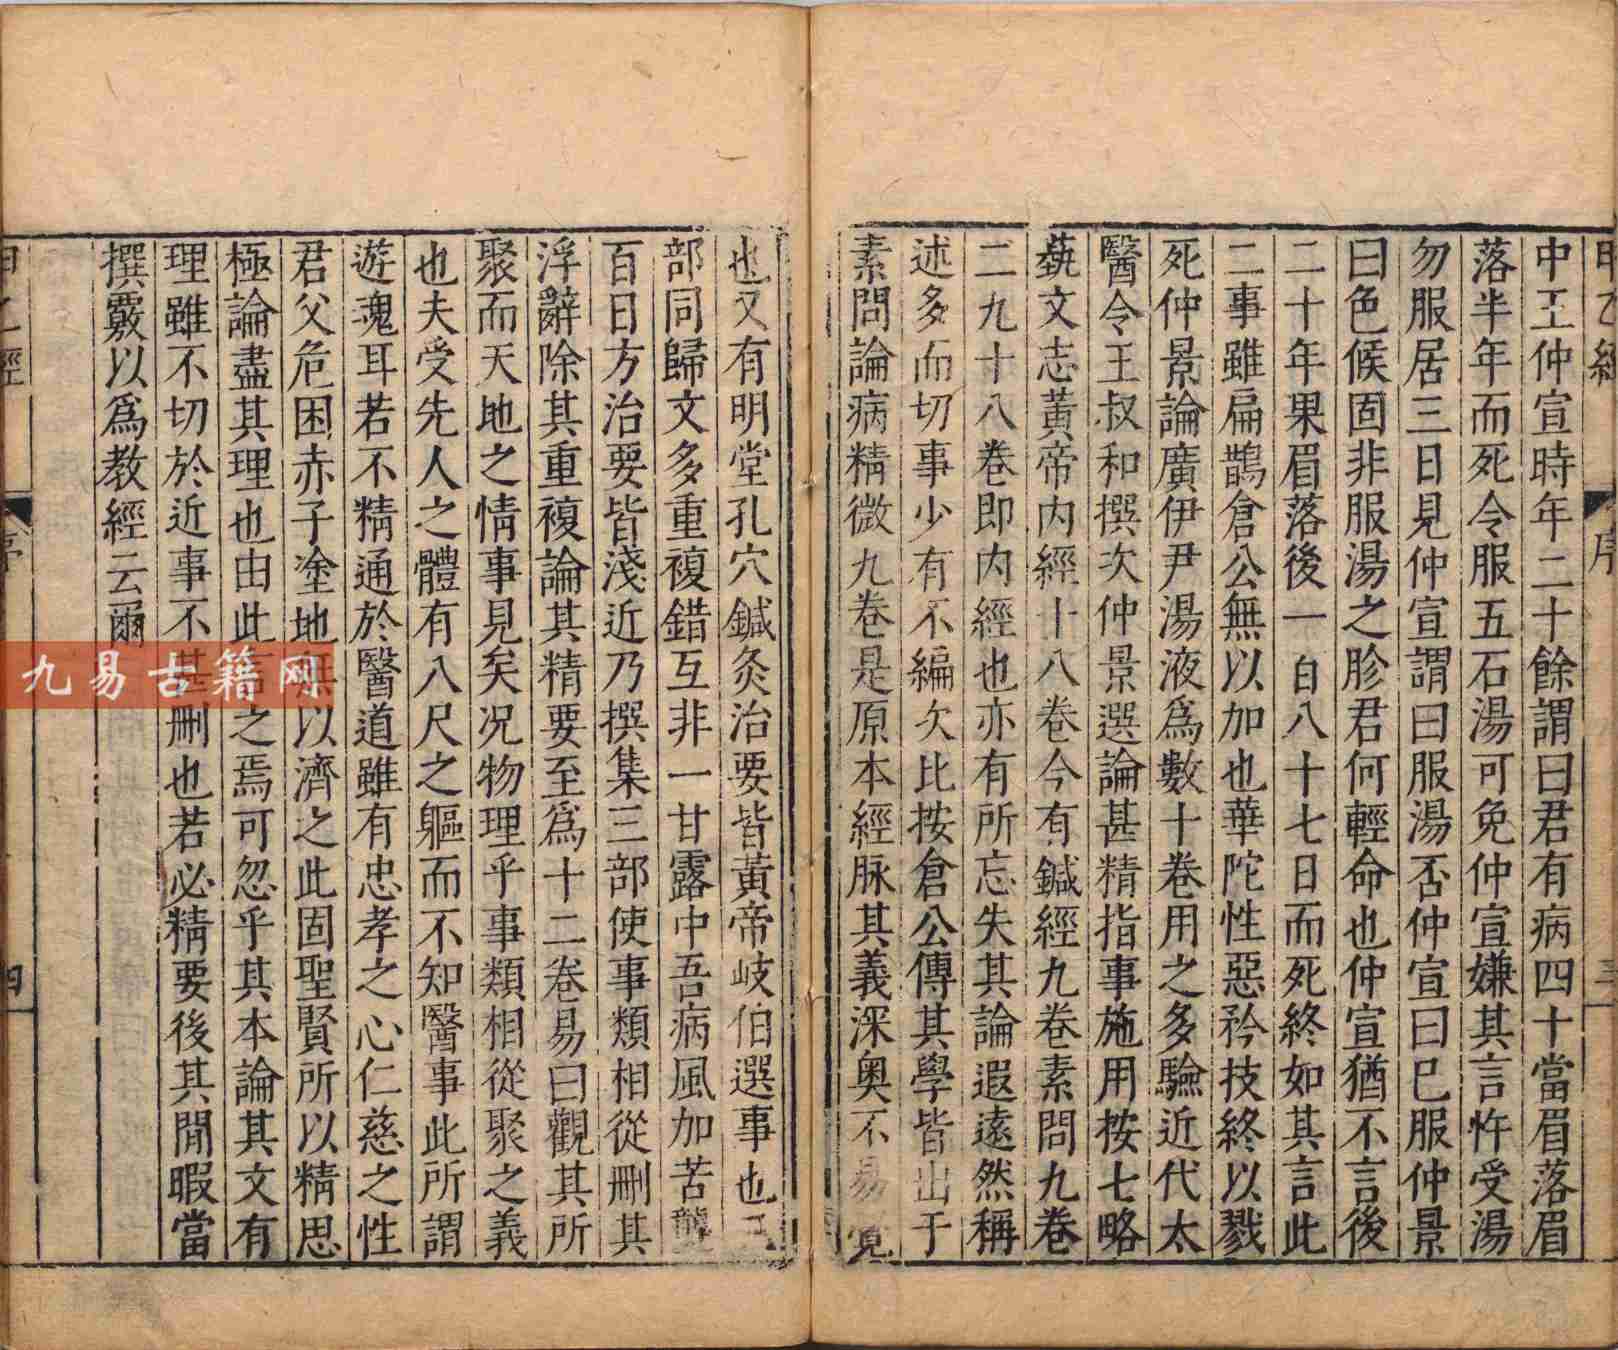 甲乙經
序
三
中王仲宣時年二十餘謂曰君有病四十當眉落眉
落半年而死令服五石湯可免仲宣嫌其言忤受湯
勿服居三日見仲宣謂曰服湯否仲宣曰巳服仲景
曰色候固非服湯之胗君何輕命也仲宣猶不言後
二十年果眉落後一百八十七日而死終如其言此
二事雖扁鵲倉公無以加也華陀性惡矜技終以戮
死仲景論廣伊尹湯液爲數十卷用之多驗近代太
醫令王叔和撰次仲景選論甚精指事施用按七略
蓺文志黃帝內經十八卷今有鍼經九卷素問九卷
二九十八卷即內經也亦有所忘失其論遐遠然稱
述多而切事少有不編次比按倉公傳其學皆出于
素問論病精微九卷是原本經脉其義深奥不易覽
也又有明堂孔穴鍼灸治要皆黃帝岐伯選事也三
部同歸文多重複錯互非一甘露中吾病風加苦聾
百日方治要皆淺近乃撰集三部使事類相從刪其
浮辭除其重複論其精要至爲十二卷易曰觀其所
聚而天地之情事見矣况物理乎事類相從聚之義
也夫受先人之體有八尺之軀而不知醫事此所謂
遊魂耳若不精通於醫道雖有忠孝之心仁慈之性
君父危困赤子塗地無以濟之此固聖賢所以精思
極論盡其理也由此言之焉可忽乎其本論其文有
理雖不切於近事不甚刪也若必精要後其閒暇當
撰覈以爲教經云爾
甲乙經
序
四
九易古籍网